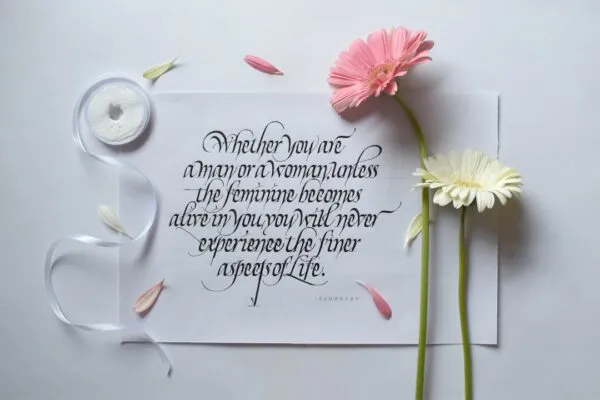 Whether you are
a man or a woman, unless
the feminine becomes
alive in you, you will never
experience the finer
aspects of Life.
SADHGURU